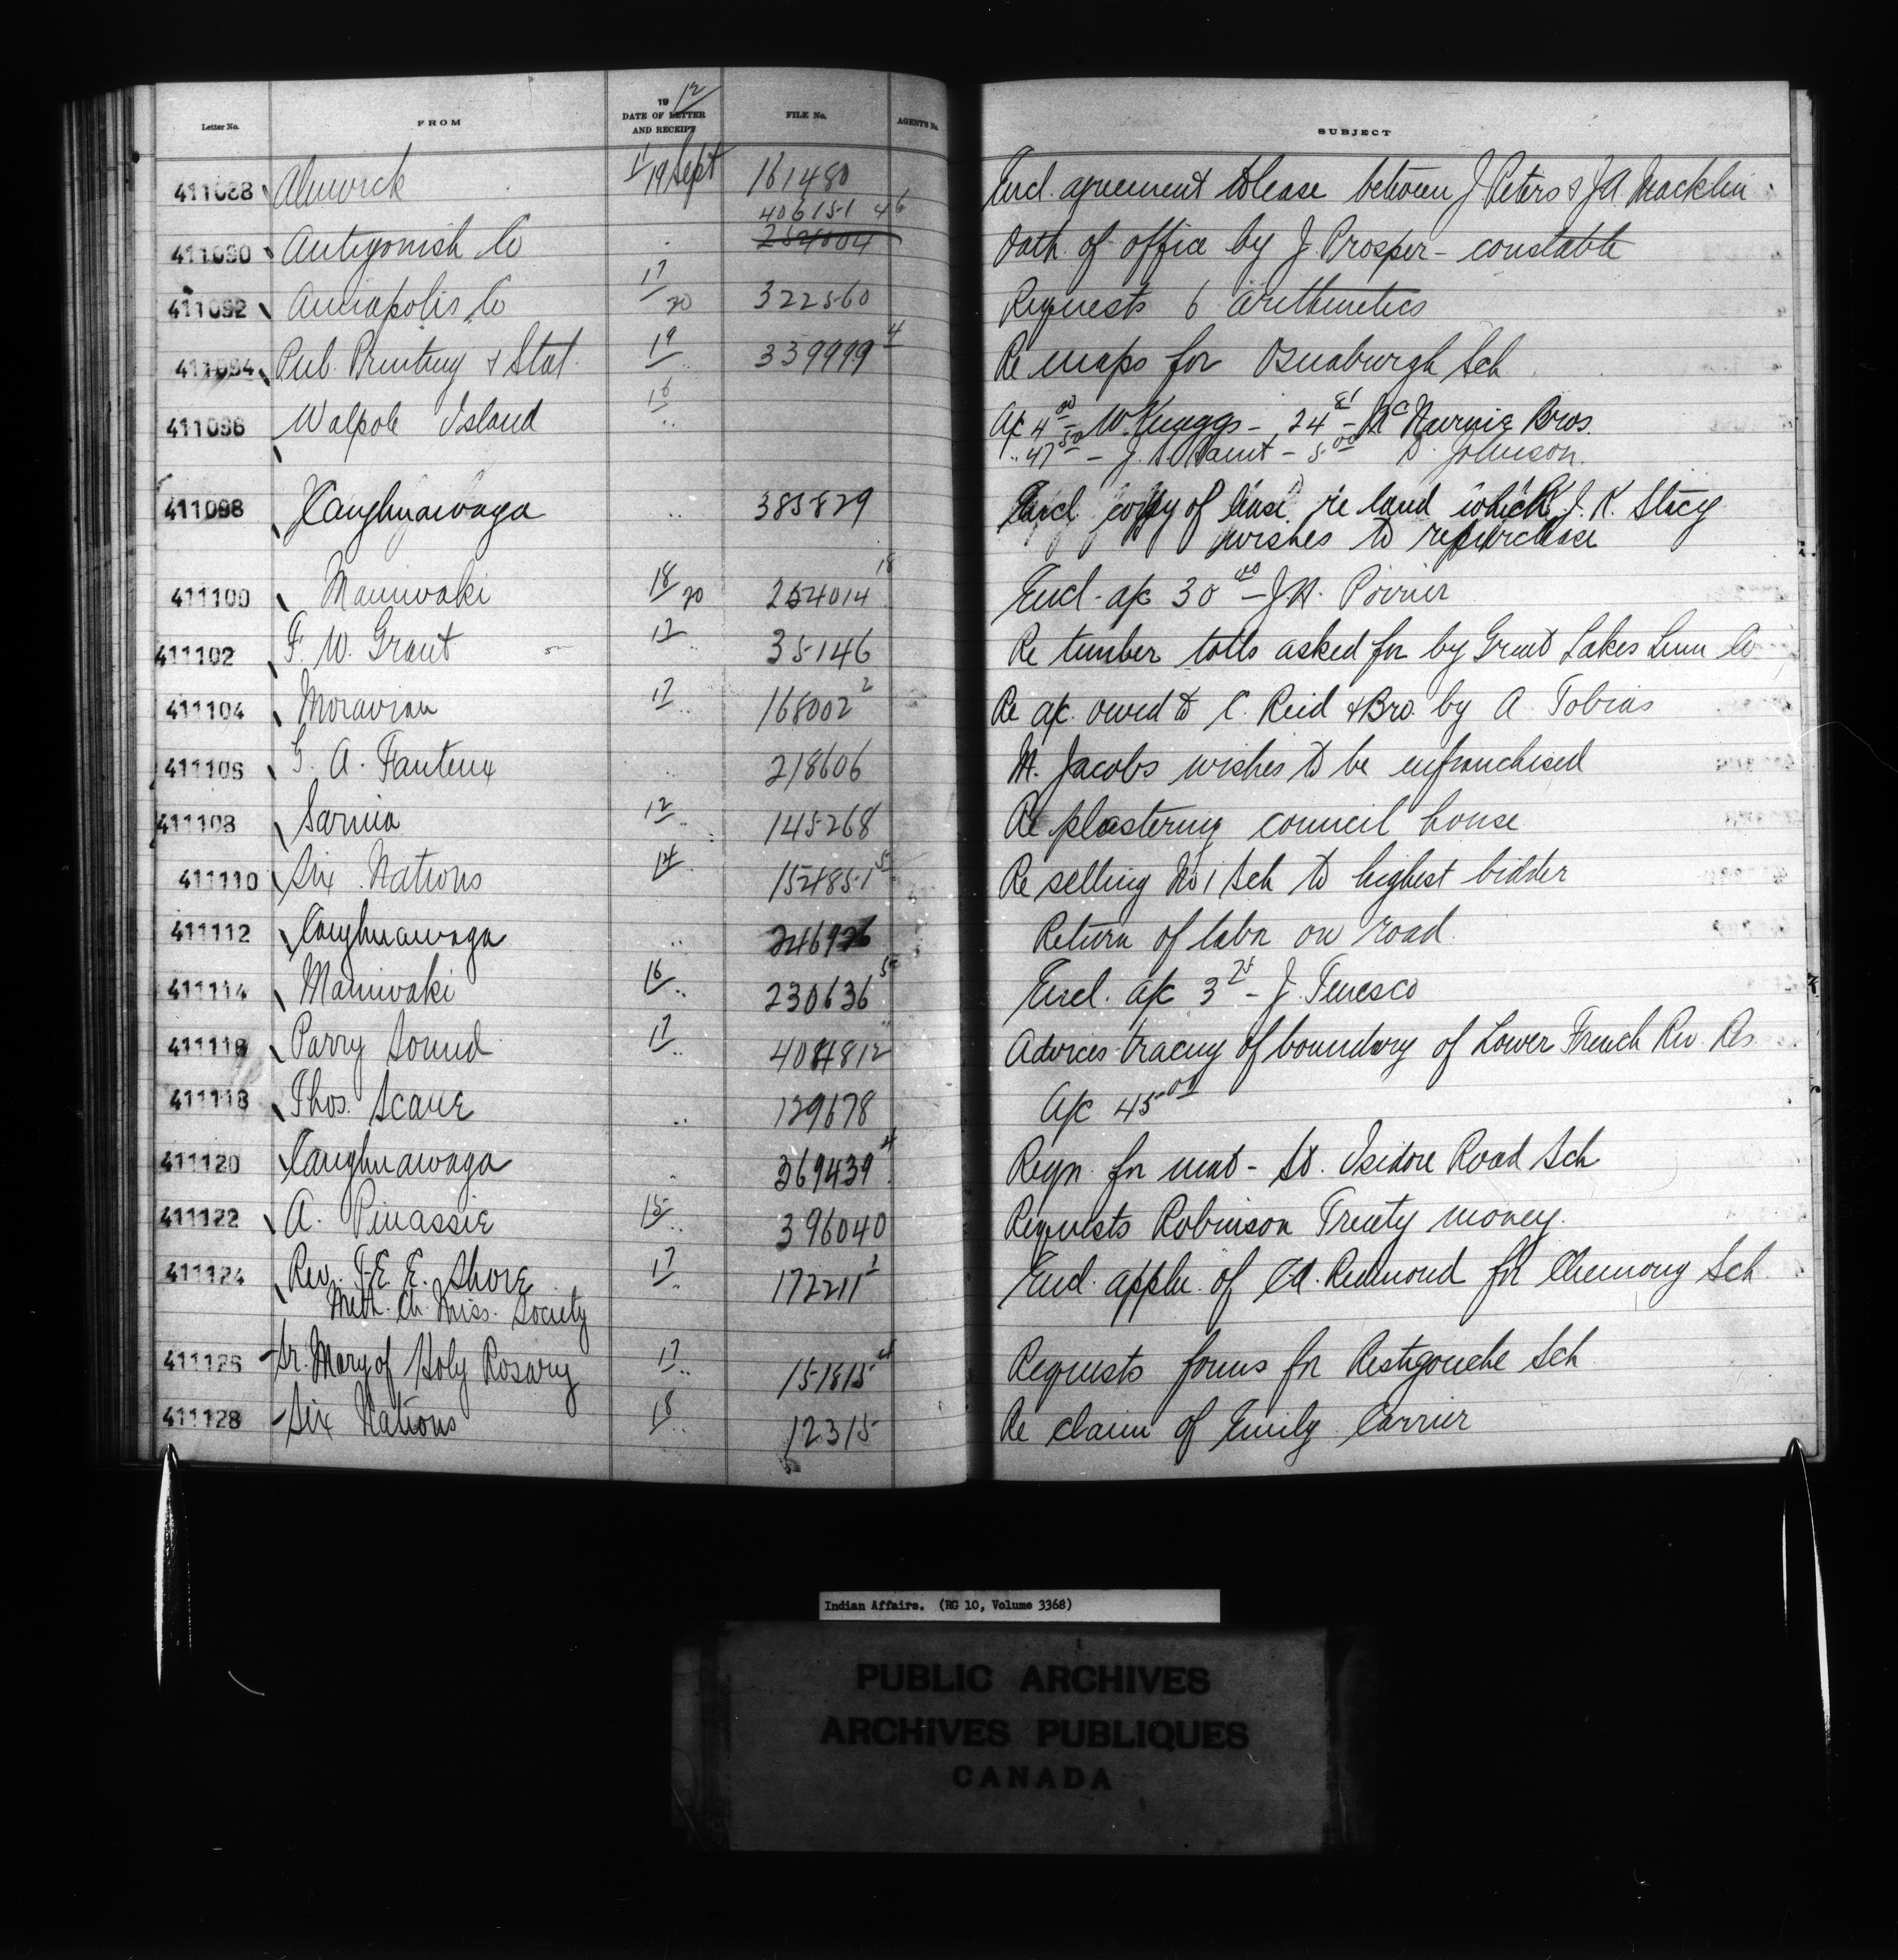 Letter No. FROM 19 12 DATE OF LETTER AND RECEIPT FILE No. AGENT'S No. SUBJECT
411088 Alnwick 17/19 Sept 161480 Encl. agreement to lease between J Peters & J A Macklin
406151 46
411090 Antigonish Co .. 254004 Oath of office by J. Prosper - constable
411092 Annapolis Co 17/20 322560 Requests 6 arithmetics
411094 Pub. Printing & Stat. 19/.. 339999 4 Re maps for Osnaburgh Sch
411096 Walpole Island 16/.. A/c 4 00 W. Knaggs - 24 81 - McNurnie Bros.
.. 47 50 - J. S. - 5 00 D. Johnson.
411098 Caughnawaga .. 385829 Encl copy of lease re land which J. K. Stacy
wishes to repurchase
411100 Maniwaki 18/20 254014 18 Encl. a/c 30 00 - J. N. Poirier
411102 F. W. Grant 17/.. 35146 Re timber tolls asked for by Great Lakes Lum Co
411104 Moravian 17/.. 168002 2 Re a/c. owed to C. Reid & Bro. by A. Tobias
411106 G. A. Fauteux .. 218606 M. Jacobs wishes to be enfranchised
411108 Sarnia 12/.. 145268 Re plastering council house
411110 Six Nations 14/.. 154851 5 Re selling No 1 Sch to highest bidder
411112 Caughnawaga .. 246926 Return of labor on road
411114 Maniwaki 16/.. 230636 5 Encl. a/c 3 25 - J. Tenesco
411116 Parry Sound 17/.. 404812 Advices tracing of boundary of Lower French Riv. Res
411118 Thos. Scane .. 129678 A/c 45 00
411120 Caughnawaga .. 369439 4 Reqn. for mat - St. Isidore Road Sch
411122 A. Pinassie 15/.. 396040 Requests Robinson Treaty money.
411124 Rev. T. E. E. Shore 17/.. 172211 2 Encl. appln. of C A. Redmond for Chemong Sch
Meth. Ch. Miss. Society
411126 Sr. Mary of Holy Rosary 17/.. 151815 4 Requests forms for Restigouche Sch
411128 Six Nations 18/.. 12315 Re claim of Emily Carrier
Indian Affairs. (RG 10, Volume 3368)
PUBLIC ARCHIVES
ARCHIVES PUBLIQUES
CANADA